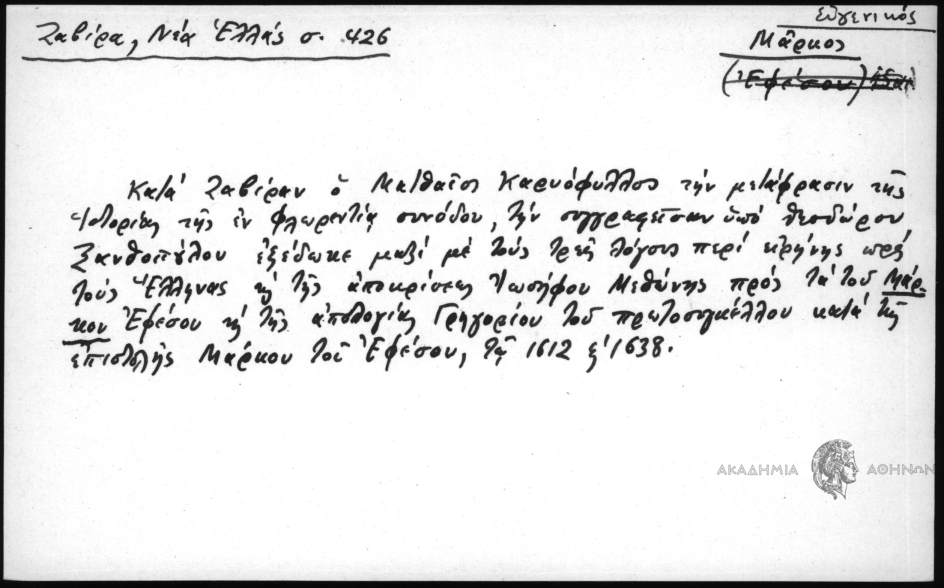 εὐγενικός
Ζαβίρα, Νέα Ἑλλάς σ. 426
Μᾶρκος
(Ἐφέσου)
Κατά Ζαβίραν ὁ Ματθαῖος Καρυόφυλλος τήν μετάφρασιν τῆς
Ἱστορίας τῆς ἐν Φλωρεντίᾳ συνόδου, τήν συγγραφεῖσαν ὑπό Θεοδώρου
Ξανθοπούλου ἐξέδωκε μαζί μέ τούς τρεῖς λόγους περί εἰρήνης πρός
τούς Ἕλληνας κ τῆς ἀποκρίσεως Ἰωσήφου Μεθώνης πρός τά τοῦ Μάρ-
κου Ἐφέσου κ τῆς ἀπολογίας Γρηγορίου τοῦ πρωτοσυγκέλλου κατά τῆς
ἐπιστολῆς Μάρκου τοῦ Ἐφέσου, τῷ 1612 κ 1638.
ΑΚΑΔΗΜΙΑ ΑΘΗΝΩΝ